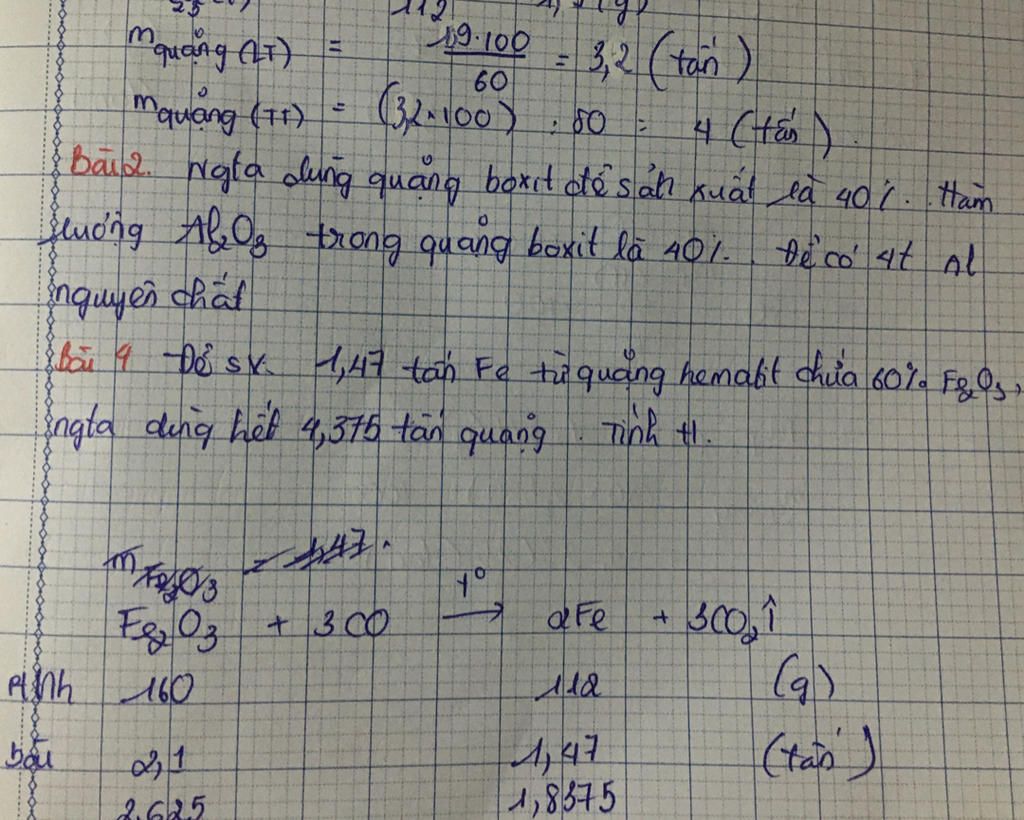 112
m quặng (LT) = 19.100 / 60 = 3,2 (tấn)
m quặng (TT) = (3,2.100) : 80 = 4 (tấn).
Bài 2. Ngta dùng quặng boxit để sản xuất là 40%. Hàm
lượng Al2O3 trong quặng boxit là 40%. Để có 4t Al
nguyên chất
Bài 4 Để sx. 1,47 tấn Fe từ quặng hematit chứa 60% Fe2O3,
ngta dùng hết 4,375 tấn quặng. Tính H.
m Fe2O3 = 1,47.
Fe2O3 + 3CO t° → 2Fe + 3CO2↑
160 112 (g)
2,1 1,47 (tấn)
2,625 1,8375